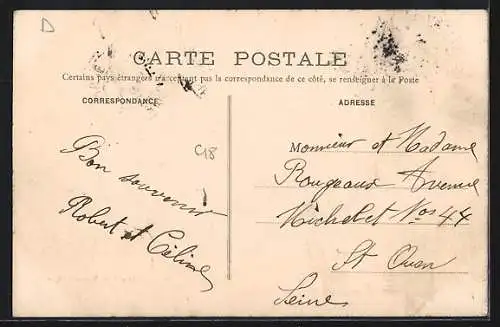 D
CARTE POSTALE
Certains pays étrangers n'acceptant pas la correspondance de ce côté, se renseigner à la Poste
CORRESPONDANCE
ADRESSE
C18
Bon souvenir
Robert et Céline
Monsieur et Madame
Rougeaux Avenue
Michelet Nos 44
St Ouen
Seine